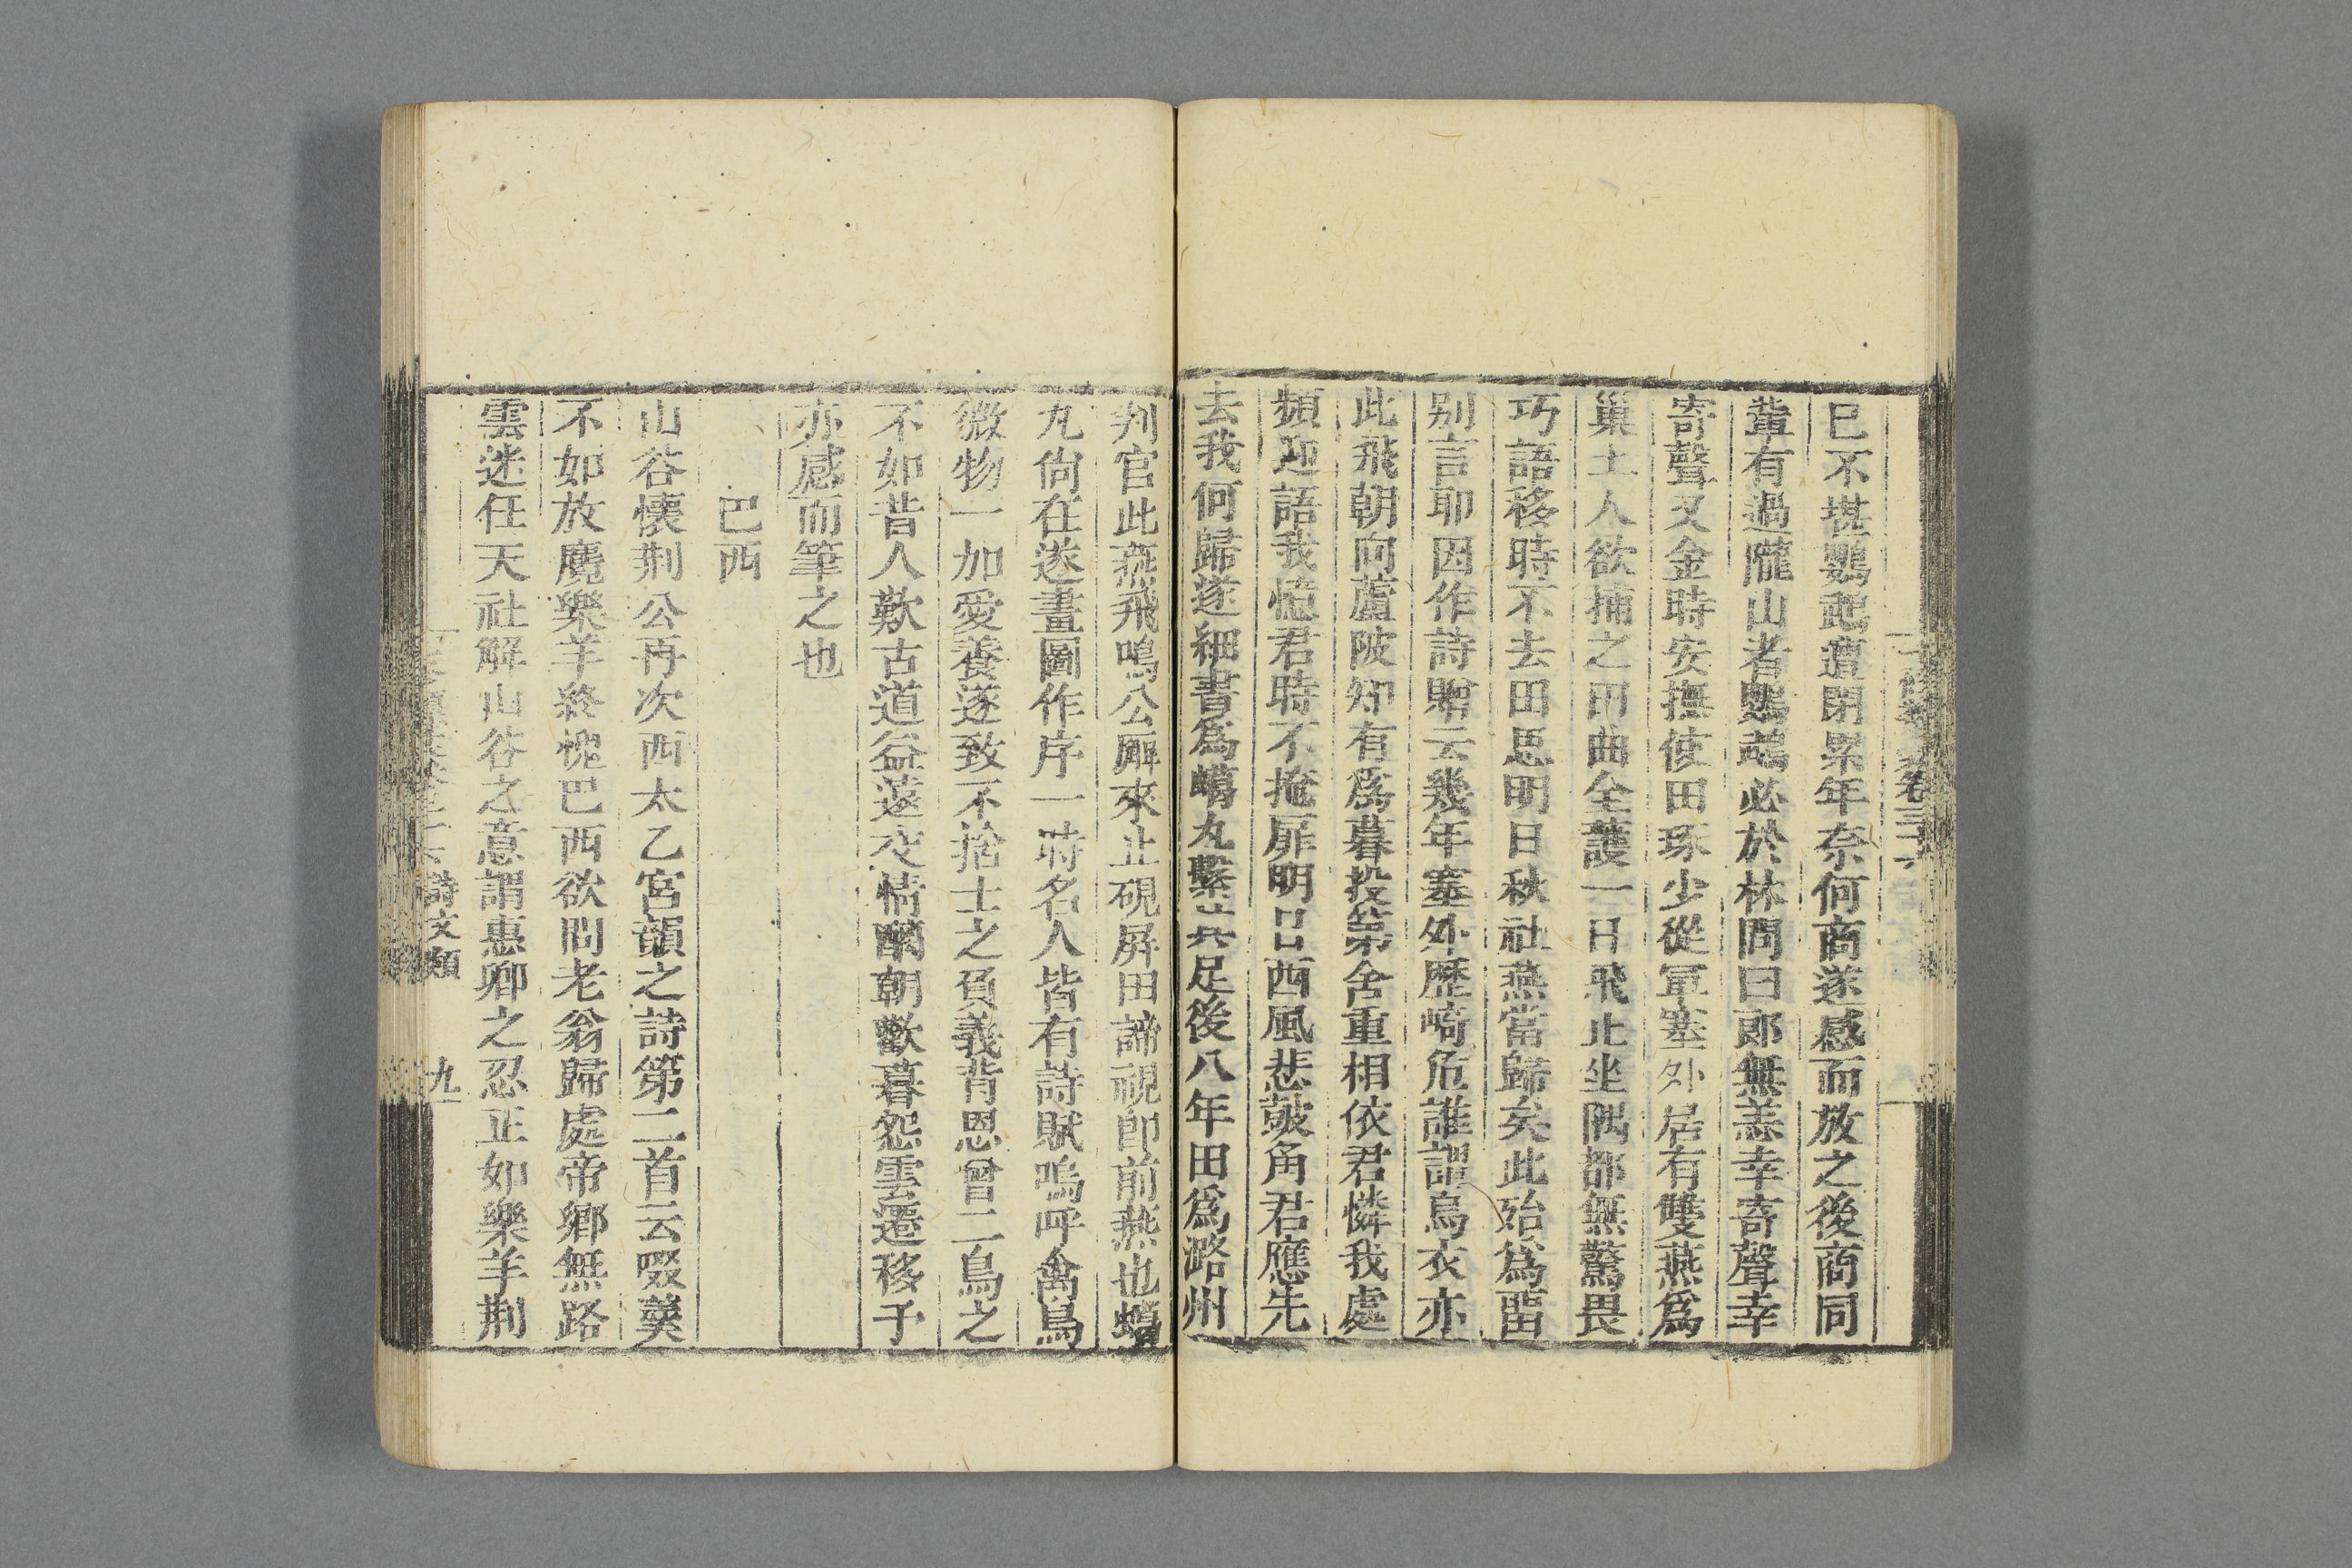 已不堪鸚鵡遭閉累年奈何商遂感而放之後商同
輩有過隴山者鸚鵡必於林間曰郎無恙幸寄聲幸
寄聲又金時安撫使田琢少從軍塞外居有雙燕爲
巢土人欲捕之田曲全護一日飛止坐隅都無驚畏
巧語移時不去田思明日秋社燕當歸矣此殆爲留
别言耶因作詩贈云幾年塞外歷崎危誰謂烏衣亦
此飛朝向蘆陂知有爲暮投第舍重相依君憐我處
頻迎語我憶君時不掩扉明日西風悲皷角君應先
去我何歸遂細書爲蠟丸繫其足後八年田爲潞州
判官此燕飛鳴公廨來止硯屏田諦視卽前燕也蠟
丸尙在遂畫圖作序一時名人皆有詩賦嗚呼禽鳥
微物一加愛養遂致不捨士之負義背恩曾二鳥之
不如昔人歎古道益遠交情醨朝歡暮怨雲遷移予
亦感而筆之也
巴西
山谷懷荆公再次西太乙宮韻之詩第二首云啜羮
不如放麑樂羊終愧巴西欲問老翁歸處帝鄉無路
雲迷任天社解山谷之意謂惠卿之忍正如樂羊荆
詩文類
九